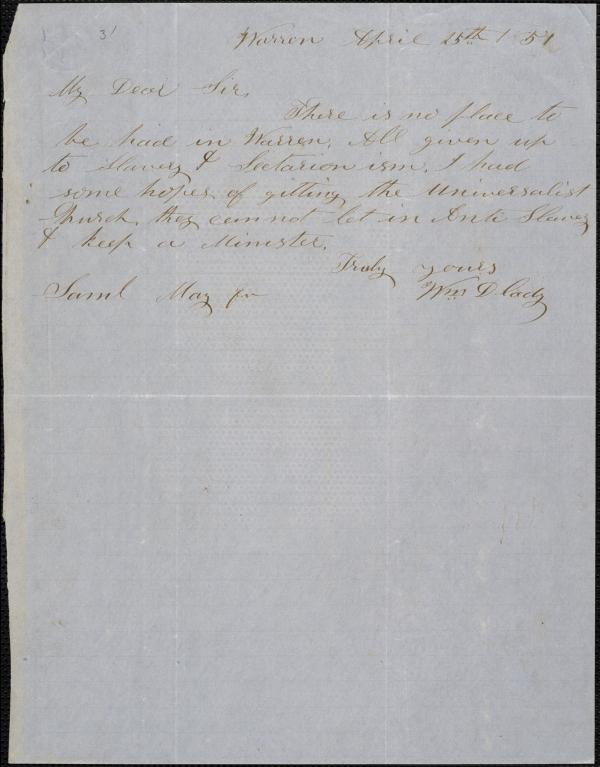 31
Warren April 25th / 51
My Dear Sir,
There is no place to
be had in Warren. All given up
to Slavery & Sectarionism. I had
some hopes of gitting the Universalist
Church they cannot let in Anti Slavery
& keep a Minister.
Truly yours
Saml May jr Wm D. Cady